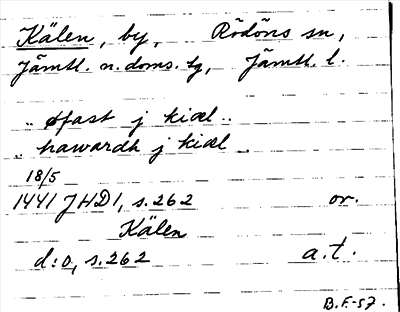 Kälen, by, Rödöns sn,
Jämtl. n. doms. tg, Jämtl. l.
.. øfast j kiæl ..
.. hawardh j kiæl ..
18/5
1441 JHD1, s. 262 or.
Kälen
d:o, s. 262 a.t.
B.F.-57.